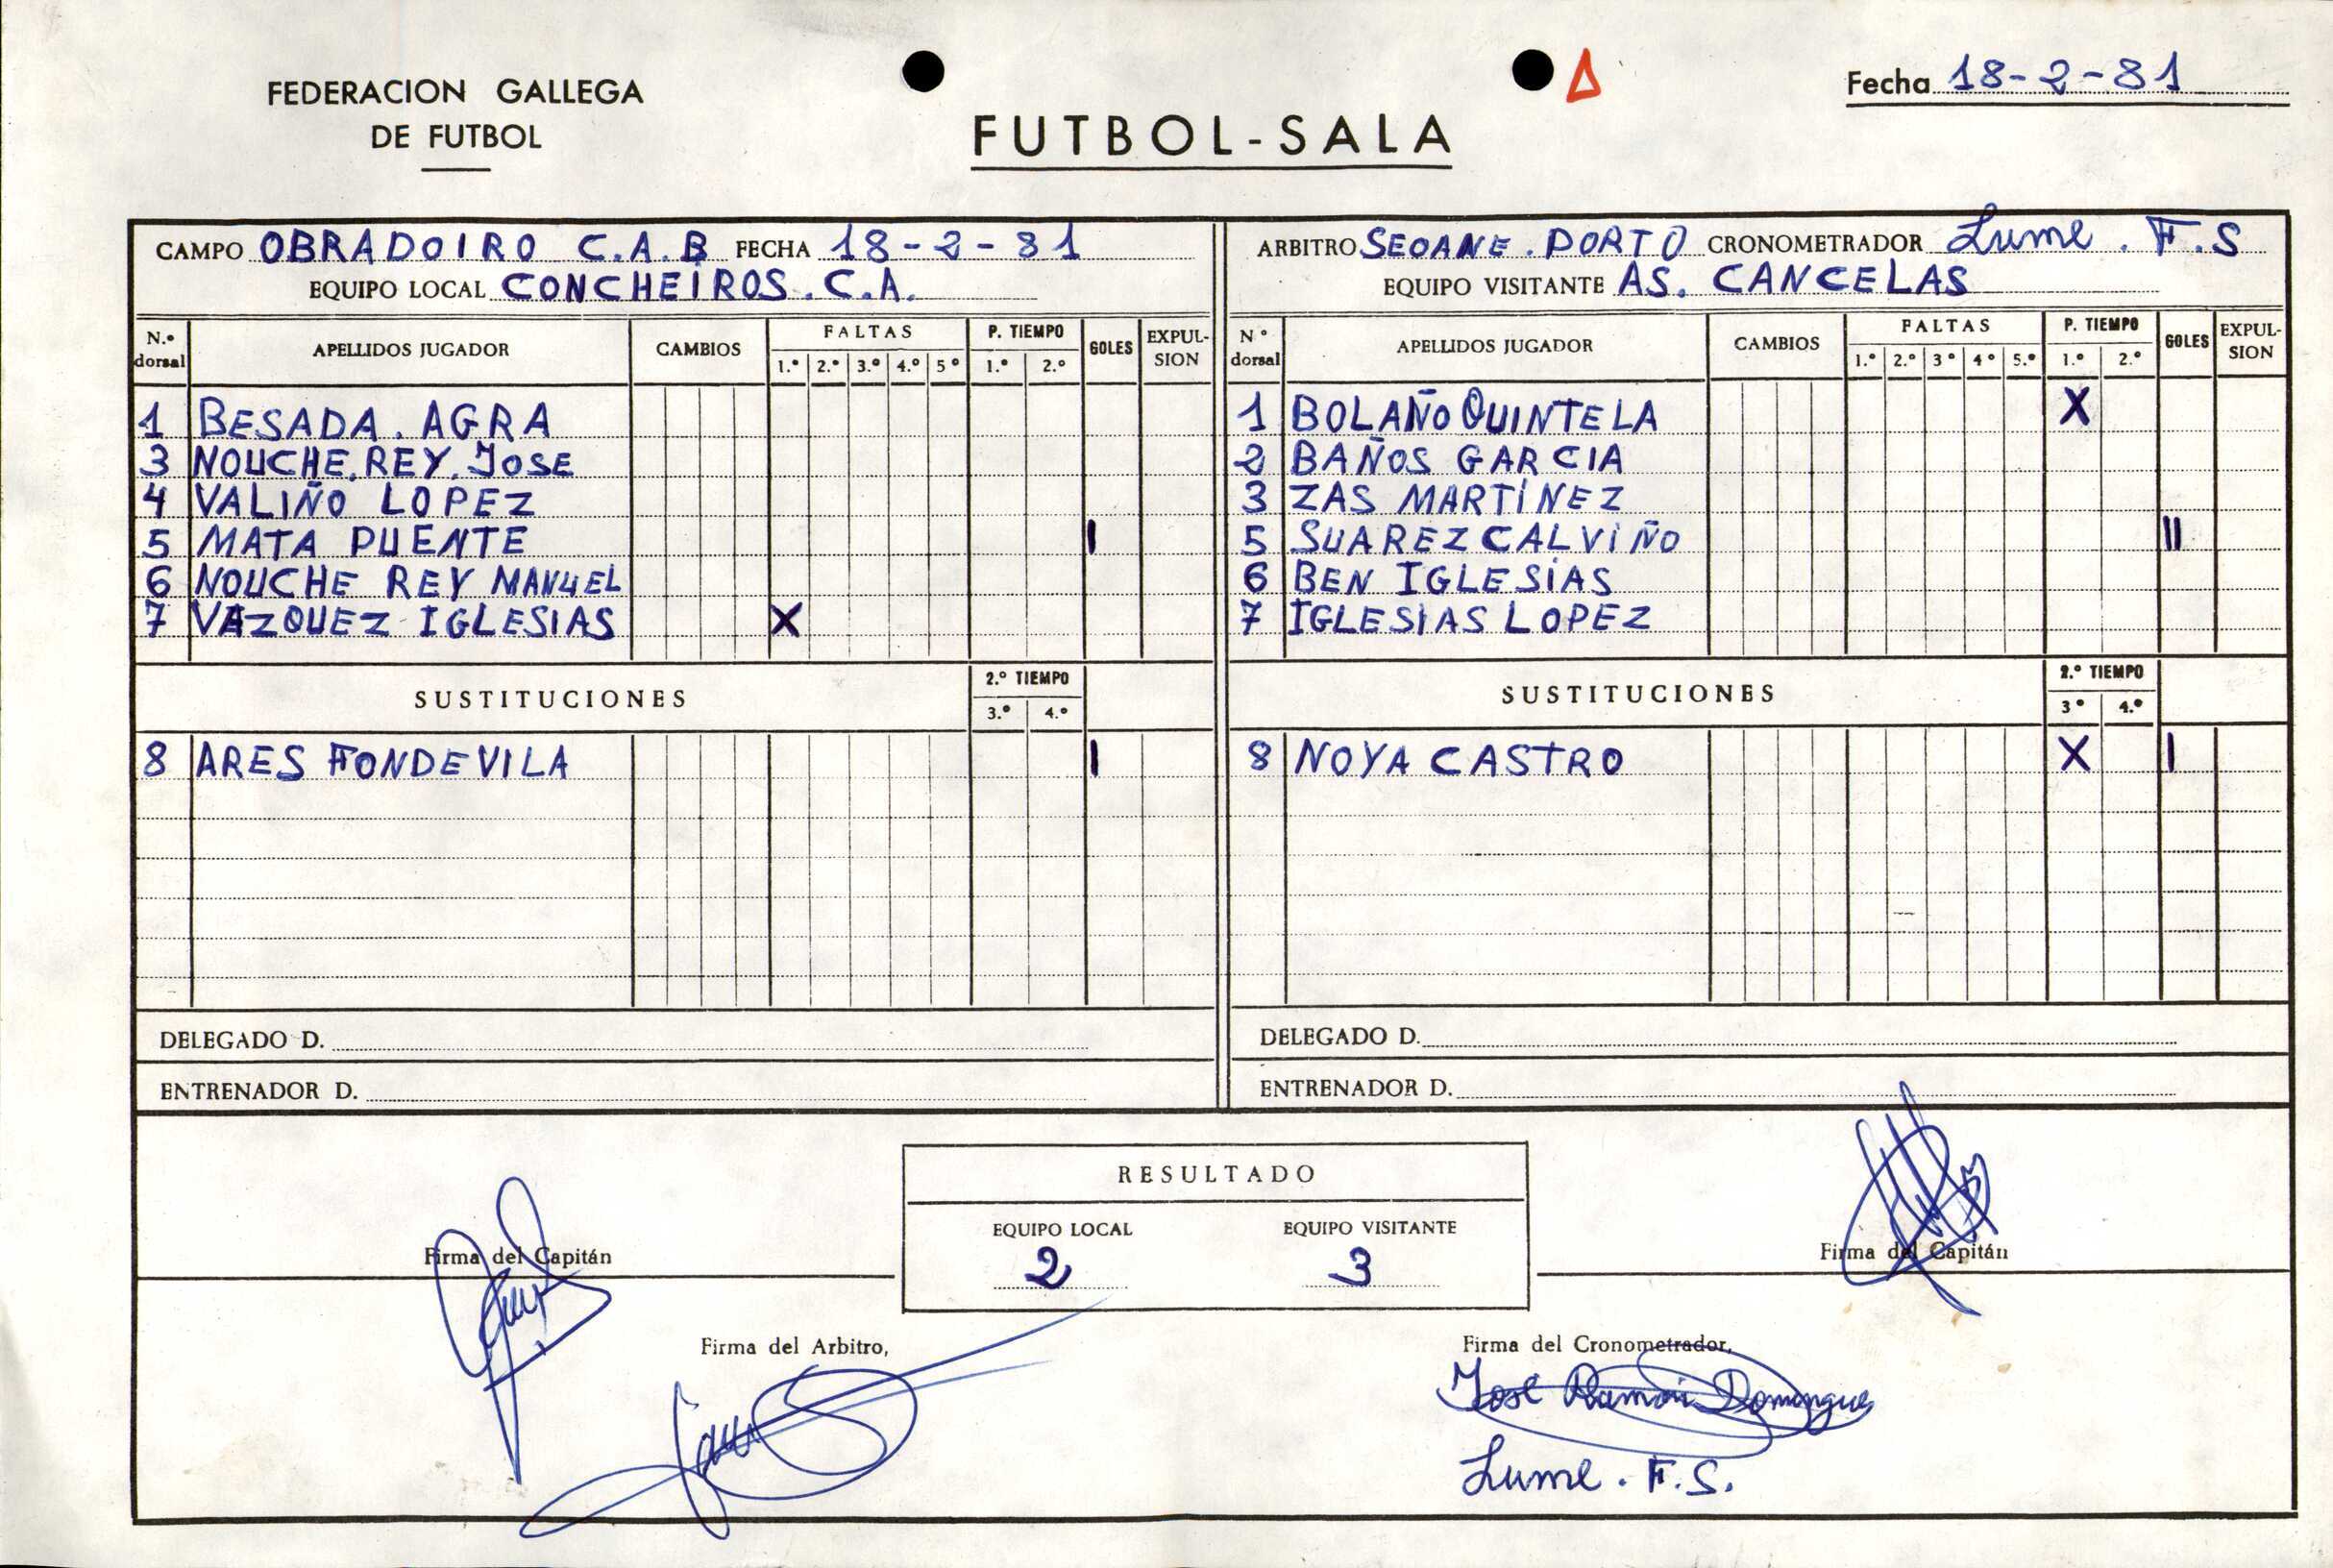 FEDERACION GALLEGA
DE FUTBOL
FUTBOL-SALA
Fecha 18-2-81
CAMPO OBRADOIRO C.A.B FECHA 18-2-81
EQUIPO LOCAL CONCHEIROS. C.A.
N.º dorsal APELLIDOS JUGADOR CAMBIOS FALTAS 1.º 2.º 3.º 4.º 5º P. TIEMPO 1.º 2.º GOLES EXPULSION
1 BESADA. AGRA
3 NOUCHE. REY. JOSE
4 VALIÑO LOPEZ
5 MATA PUENTE I
6 NOUCHE REY MANUEL
7 VAZQUEZ IGLESIAS X
SUSTITUCIONES 2.º TIEMPO 3.º 4.º
8 ARES FONDEVILA I
DELEGADO D.
ENTRENADOR D.
ARBITRO SEOANE. PORTO CRONOMETRADOR Lume. F.S
EQUIPO VISITANTE AS. CANCELAS
Nº dorsal APELLIDOS JUGADOR CAMBIOS FALTAS 1.º 2.º 3º 4º 5.º P. TIEMPO 1.º 2.º GOLES EXPULSION
1 BOLAÑO QUINTELA X
2 BAÑOS GARCIA
3 ZAS MARTÍNEZ
5 SUAREZ CALVIÑO II
6 BEN IGLESIAS
7 IGLESIAS LOPEZ
SUSTITUCIONES 2.º TIEMPO 3º 4.º
8 NOYA CASTRO X I
DELEGADO D.
ENTRENADOR D.
RESULTADO
EQUIPO LOCAL EQUIPO VISITANTE
2 3
Firma del Capitán
Firma del Capitán
Firma del Arbitro,
Firma del Cronometrador,
José Ramón Domingue
Lume. F.S.